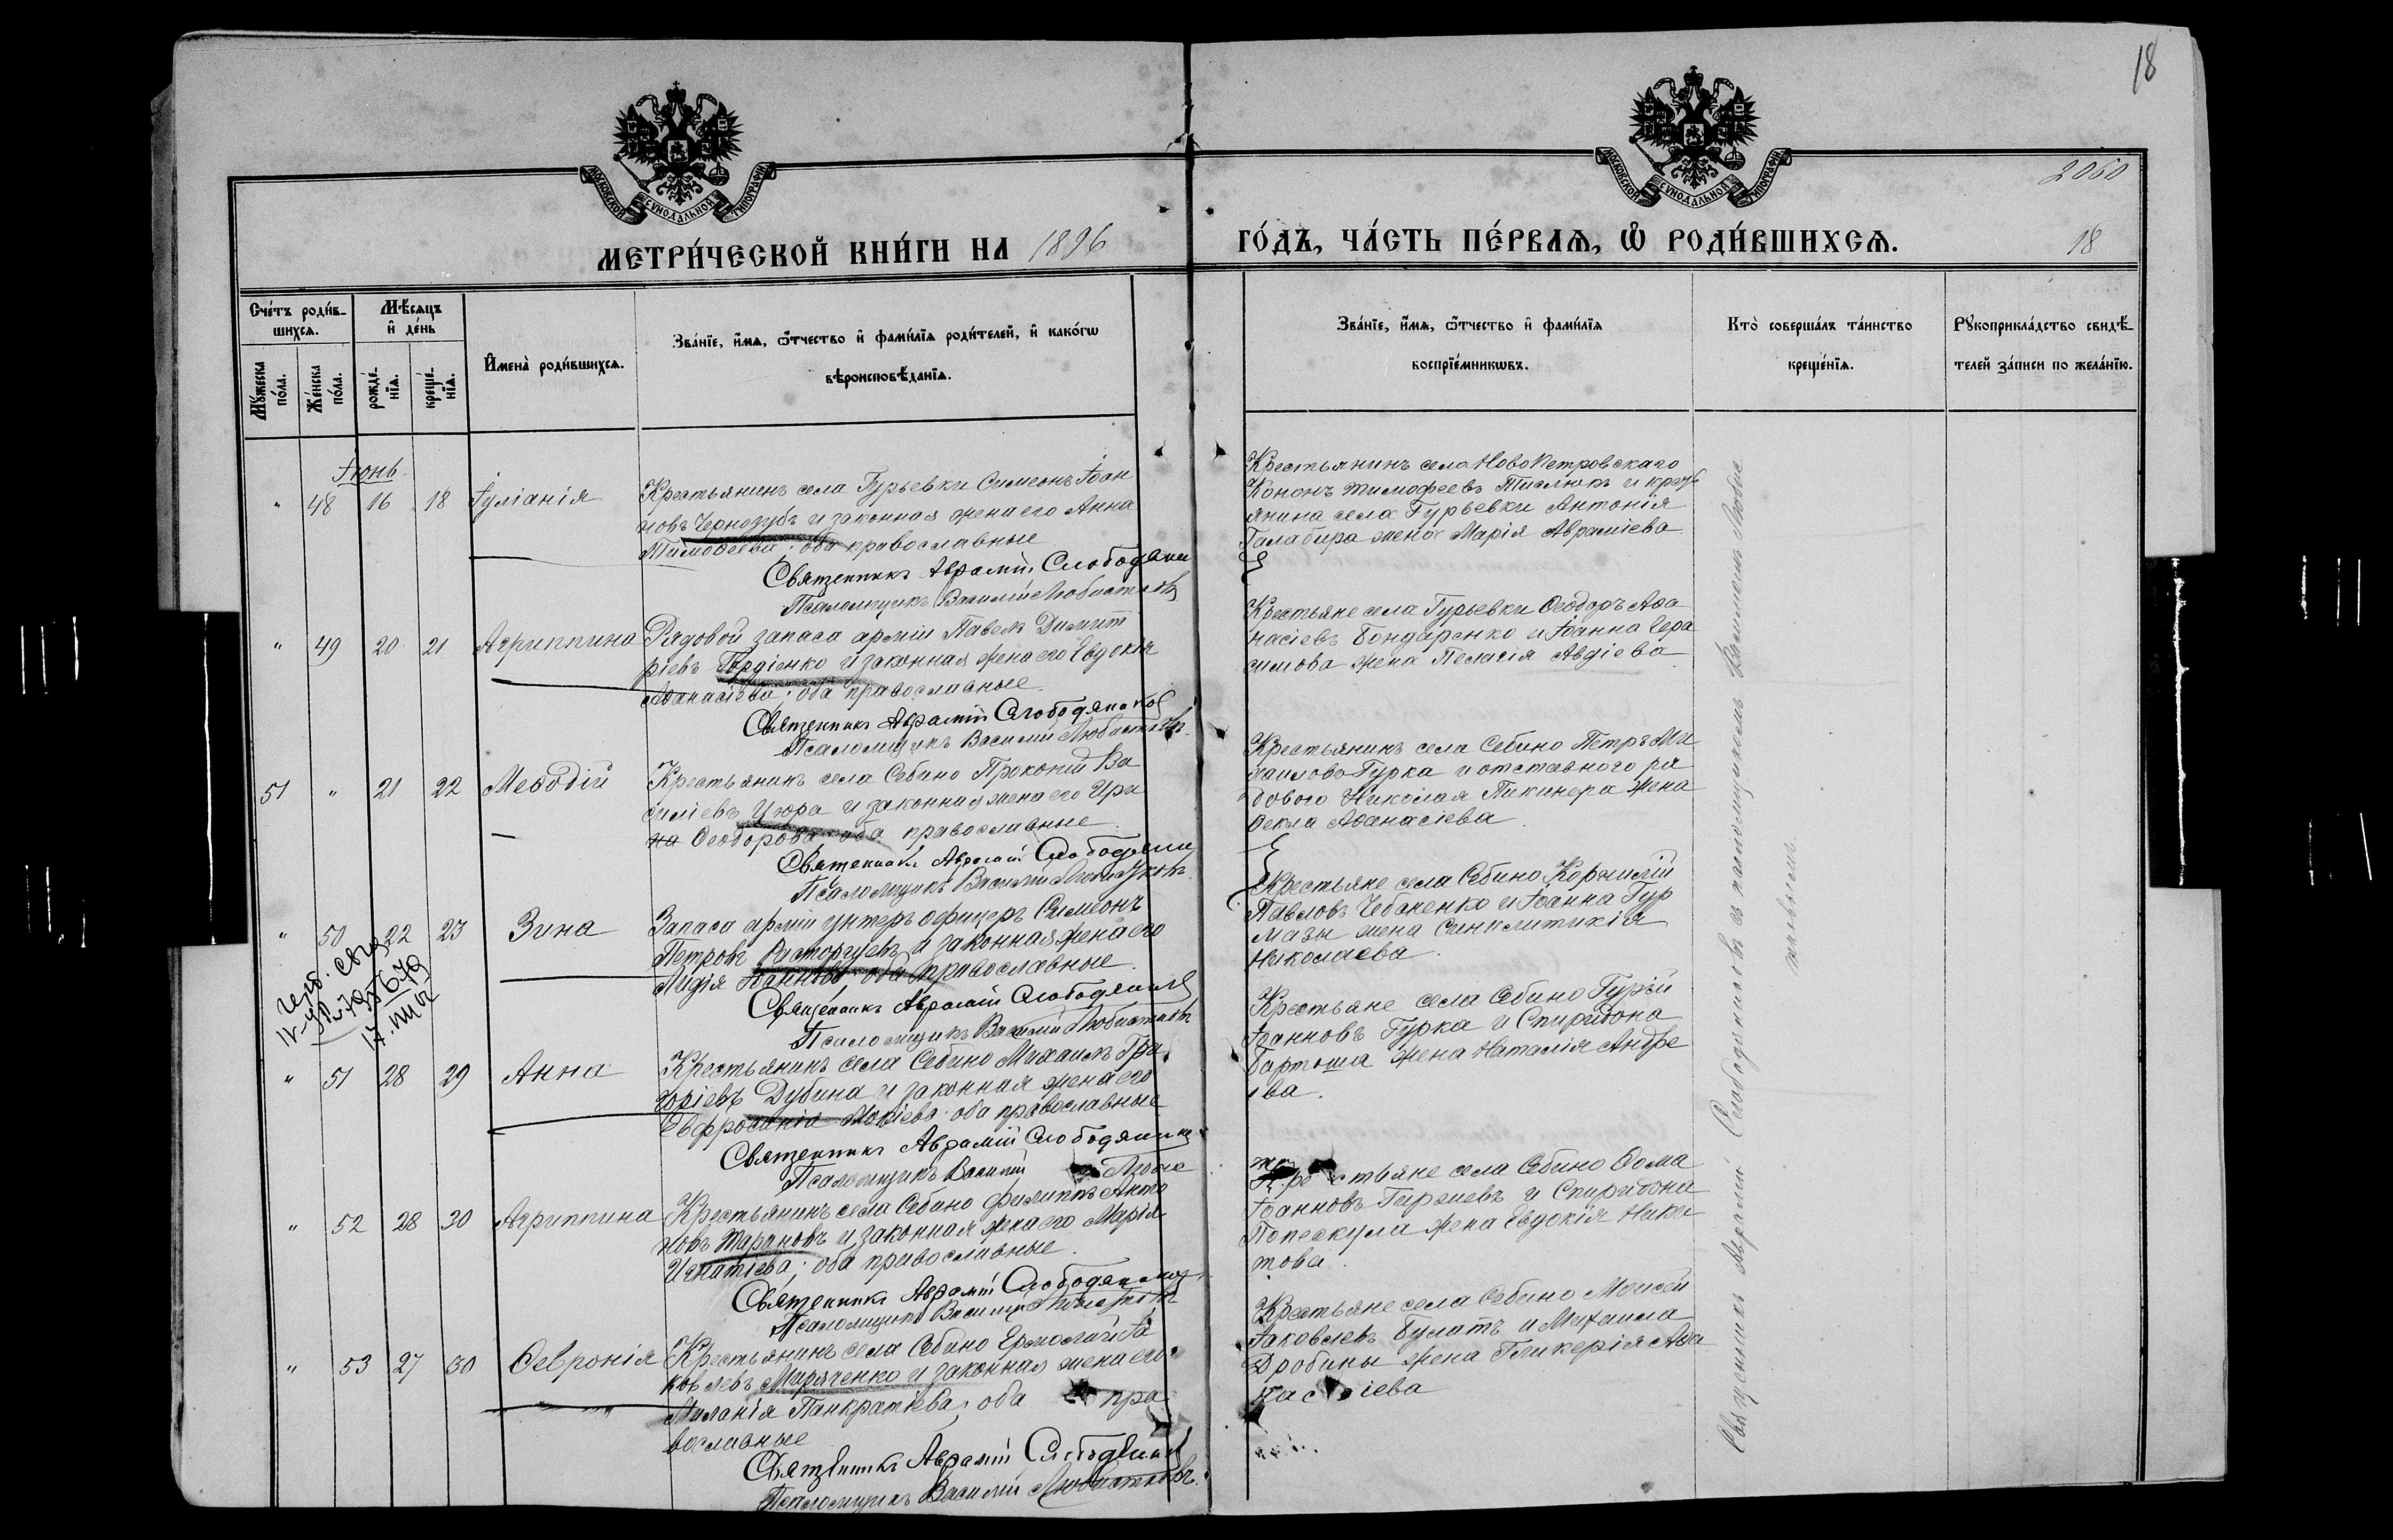 18
2050
18
МОСКОВСКОЙ СѴНОДАЛЬНОЙ ТИПОГРАФІИ
МОСКОВСКОЙ СѴНОДАЛЬНОЙ ТИПОГРАФІИ
МЕТРИ́ЧЕСКОЙ КНИ́ГИ НА 1896
ГО́ДЪ, ЧА́СТЬ ПЕ́РВАѦ, Ѽ РОДИ́ВШИХСѦ.
Сче́тъ роди́в-
шихсѧ.
Мꙋ́жеска
по́ла.
Же́нска
по́ла.
Мѣ́сѧцъ
и҆ де́нь
рожде́-
нїѧ.
креще́-
нїѧ.
И҆мена̀ роди́вшихсѧ.
Зва́нїе, и҆́мѧ, ѻ҆́тчество и҆ фами́лїѧ роди́телей, и҆ како́гѡ
вѣроисповѣ́данїѧ.
Зва́нїе, и҆́мѧ, ѻ҆́тчество и҆ фами́лїѧ
воспрїе́мникѡвъ.
Кто̀ соверша́лъ та́инство
креще́нїѧ.
Рꙋкоприкла́дство свидѣ́-
телей за́писи по жела́нїю.
Іюнь
" 48 16 18 Іуліанія
Крестьянинъ села Гурьевки Симеонъ Іоан
новъ Чернозубъ и законная жена его Анна
Тимоѳеева; оба православные
Священникъ Аврамій Слободяник
Псаломщикъ Василій Любистковъ
Крестьянинъ села НовоПетровскаго
Кононъ Тимофеевъ Тислюкъ и крест
янина села Гурьевки Антонія
Галабира жена Марія Авраміева
" 49 20 21 Агриппина
Рядовой запаса арміи Павелъ Димит
ріевъ Гордіенко и законная жена его Евдокія
Аѳанасіева; оба православные
Священникъ Аврамій Слободяников
Псаломщикъ Василій Любистковъ
Крестьяне села Гурьевки Ѳеодоръ Аѳа
насіевъ Бондаренко и Іоанна Гера
симова жена Пелагія Авдіева
51 " 21 22 Меѳодій
Крестьянинъ села Себино Прокопій Ва
силіевъ Цюра и законная жена его Ири
на Ѳеодорова оба православные
Священникъ Аврамій Слободяник
Псаломщикъ Василій Любистковъ
Крестьянинъ села Себино Петръ Ми
хаиловъ Гурка и отставного ря
дового Николая Пикинера жена
Ѳекла Аѳанасіева
" 50 22 23 Зина
Запаса арміи унтеръ офицеръ Симеонъ
Петровъ Расторгуевъ и законная жена его
Лидія Іоаннова оба православные
Священникъ Аврамій Слободяников
Псаломщикъ Василій Любистковъ
Крестьяне села Себино Корнилій
Павловъ Чебаненко и Іоанна Гур
мазы жена Синклитикія
Николаева
" 51 28 29 Анна
Крестьянинъ села Себино Михаилъ Гри
горіевъ Дубина и законная жена его
Евфросинія Мокіева оба православные
Священникъ Аврамій Слободяник
Псаломщикъ Василій Любис
Крестьяне села Себино Гурій
Іоанновъ Гурка и Спиридона
Бартоша жена Наталія Андре
ева
" 52 28 30 Агриппина
Крестьянинъ села Себино Филиппъ Анто
новъ Тарановъ и законная жена его Марія
Игнатіева; оба православные
Священникъ Аврамій Слободяников
Псаломщикъ Василій Любистковъ
Крестьяне села Себино Ѳома
Іоанновъ Гиржевъ и Спиридона
Попескула жена Евдокія Ники
това
" 53 27 30 Ѳевронія
Крестьянинъ села Себино Ермолай Іа
ковлевъ Миряченко и законная жена его
Миланія Панкратіева; оба пра
вославные
Священникъ Аврамій Слободяников
Псаломщикъ Василій Любистковъ
Крестьяне села Себино Моисей
Іаковлевъ Булатъ и Михаила
Дробины жена Гликерія Аѳа
насіева
Священникъ Аврамій Слободяниковъ съ псаломщикомъ Василіемъ Любист
ковымъ